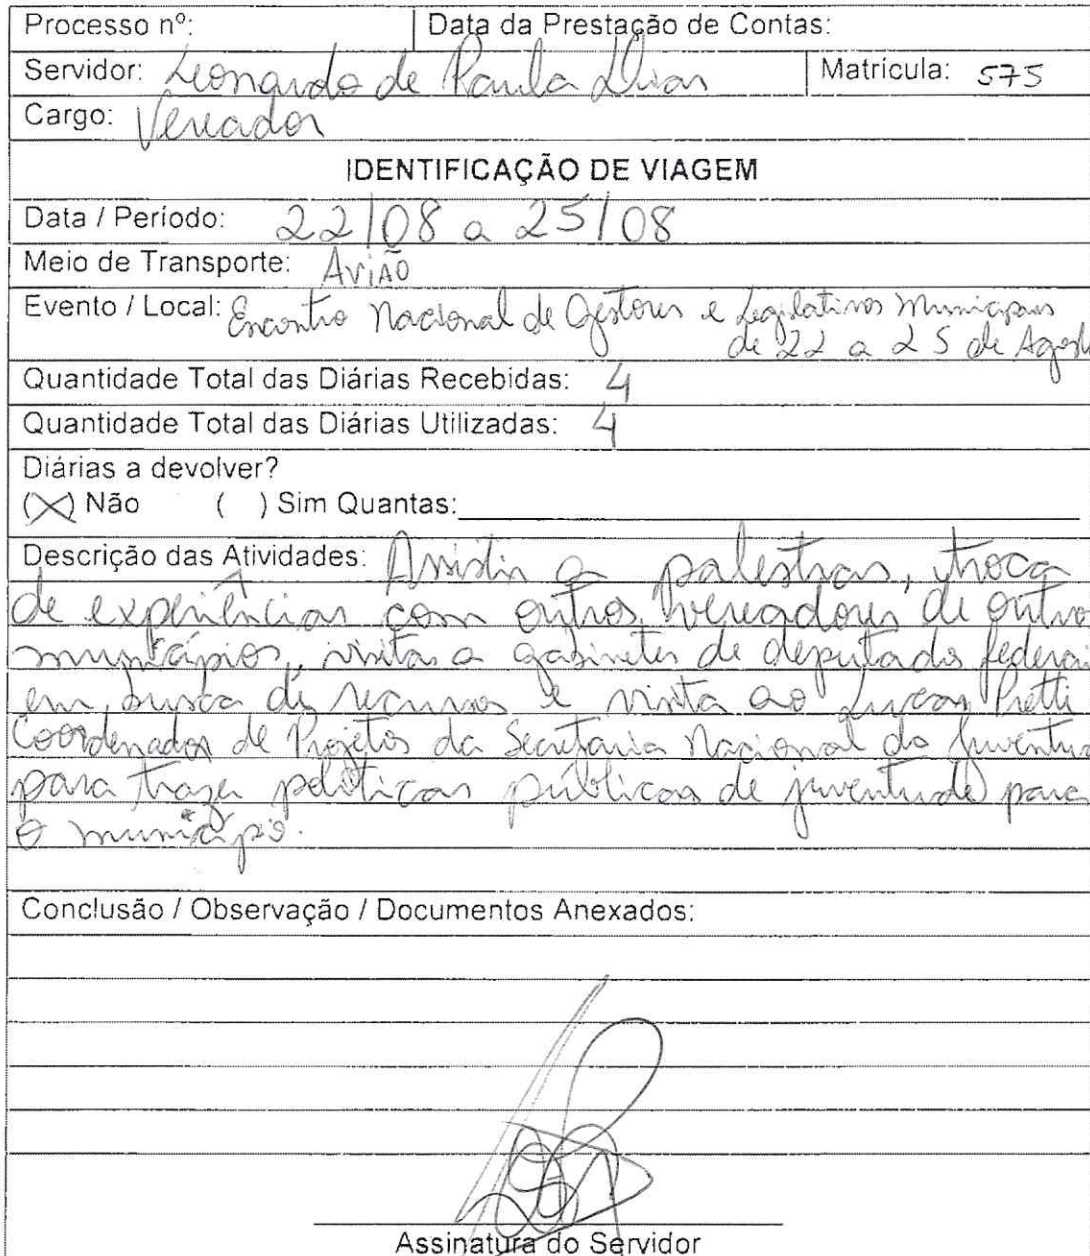 Processo nº: Data da Prestação de Contas:
Servidor: Leonardo de Paula Dias Matrícula: 575
Cargo: Vereador
IDENTIFICAÇÃO DE VIAGEM
Data / Período: 22/08 a 25/08
Meio de Transporte: AVIÃO
Evento / Local: Encontro Nacional de Gestores e Legislativos Municipais
de 22 a 25 de Agosto
Quantidade Total das Diárias Recebidas: 4
Quantidade Total das Diárias Utilizadas: 4
Diárias a devolver?
(X) Não ( ) Sim Quantas:
Descrição das Atividades: Assistir a palestras, troca
de experiências com outros vereadores de outros
municípios, visitas a gabinetes de deputados federais
em busca de recursos e visita ao Lucas Pretti
Coordenador de Projetos da Secretaria Nacional da Juventude
para trazer políticas públicas de juventude para
o município.
Conclusão / Observação / Documentos Anexados:
Assinatura do Servidor